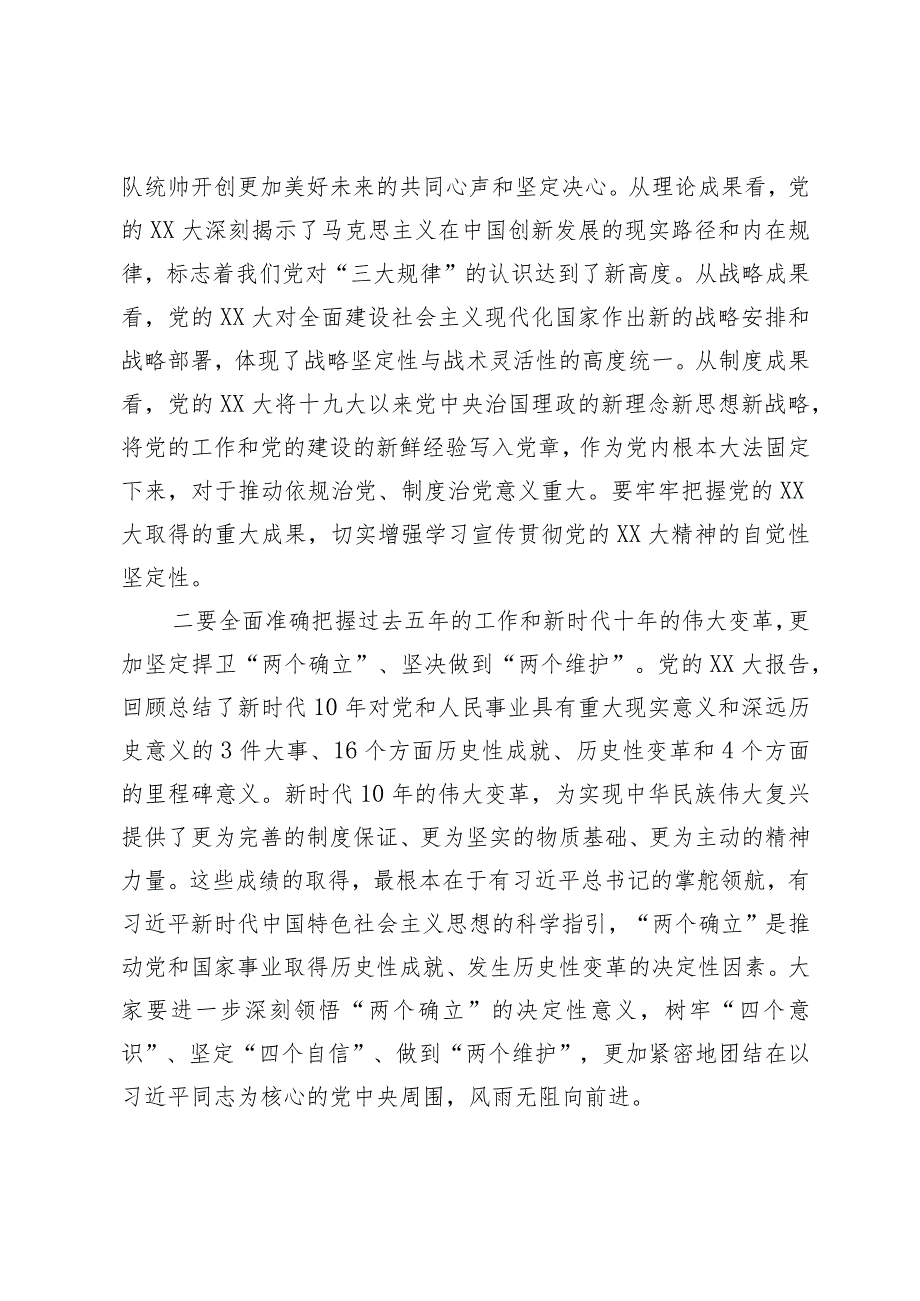 队统帅开创更加美好未来的共同心声和坚定决心。从理论成果看，党
的 XX 大深刻揭示了马克思主义在中国创新发展的现实路径和内在规
律，标志着我们党对“三大规律”的认识达到了新高度。从战略成果
看，党的 XX 大对全面建设社会主义现代化国家作出新的战略安排和
战略部署，体现了战略坚定性与战术灵活性的高度统一。从制度成果
看，党的 XX 大将十九大以来党中央治国理政的新理念新思想新战略，
将党的工作和党的建设的新鲜经验写入党章，作为党内根本大法固定
下来，对于推动依规治党、制度治党意义重大。要牢牢把握党的 XX
大取得的重大成果，切实增强学习宣传贯彻党的 XX 大精神的自觉性
坚定性。
二要全面准确把握过去五年的工作和新时代十年的伟大变革，更
加坚定捍卫“两个确立”、坚决做到“两个维护”。党的 XX 大报告，
回顾总结了新时代 10 年对党和人民事业具有重大现实意义和深远历
史意义的 3 件大事、16 个方面历史性成就、历史性变革和 4 个方面
的里程碑意义。新时代 10 年的伟大变革，为实现中华民族伟大复兴
提供了更为完善的制度保证、更为坚实的物质基础、更为主动的精神
力量。这些成绩的取得，最根本在于有习近平总书记的掌舵领航，有
习近平新时代中国特色社会主义思想的科学指引，“两个确立”是推
动党和国家事业取得历史性成就、发生历史性变革的决定性因素。大
家要进一步深刻领悟“两个确立”的决定性意义，树牢“四个意
识”、坚定“四个自信”、做到“两个维护”，更加紧密地团结在以
习近平同志为核心的党中央周围，风雨无阻向前进。